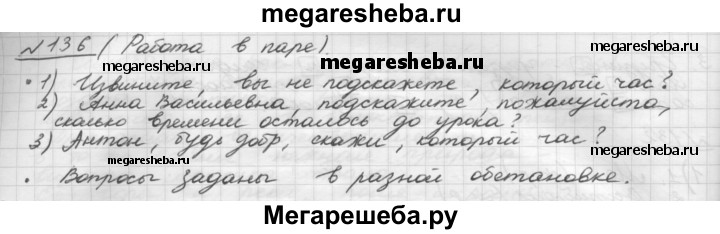 megaresheba.ru
№136 (Работа в паре)
megaresheba.ru
• 1) Извините, вы не подскажете, который час?
2) Анна Васильевна, подскажите, пожалуйста,
сколько времени осталось до урока?
3) Антон, будь добр, скажи, который час?
megaresheba.ru
megaresheba.ru
• Вопросы заданы в разной обстановке.
Мегарешеба.ру